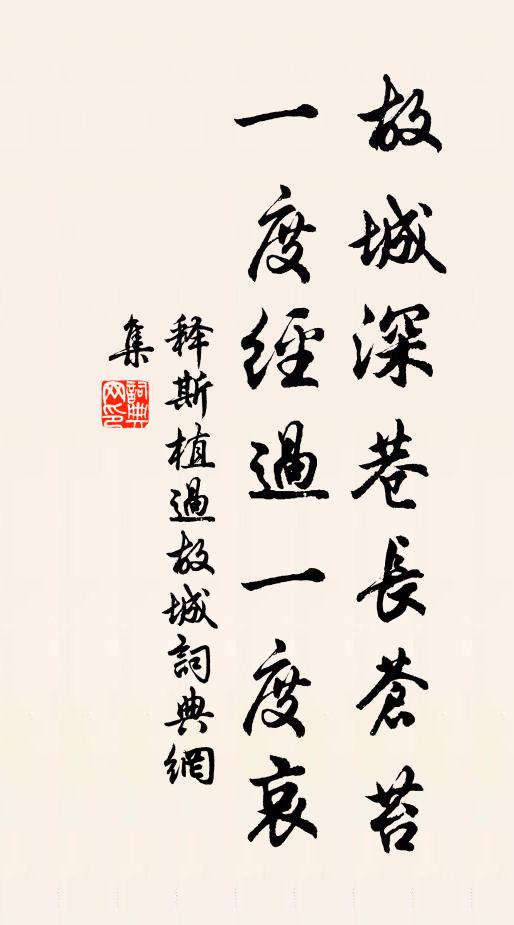 故城深巷長蒼苔
一度經過一度哀
释斯植過故城詞典網
集
詞典
网印